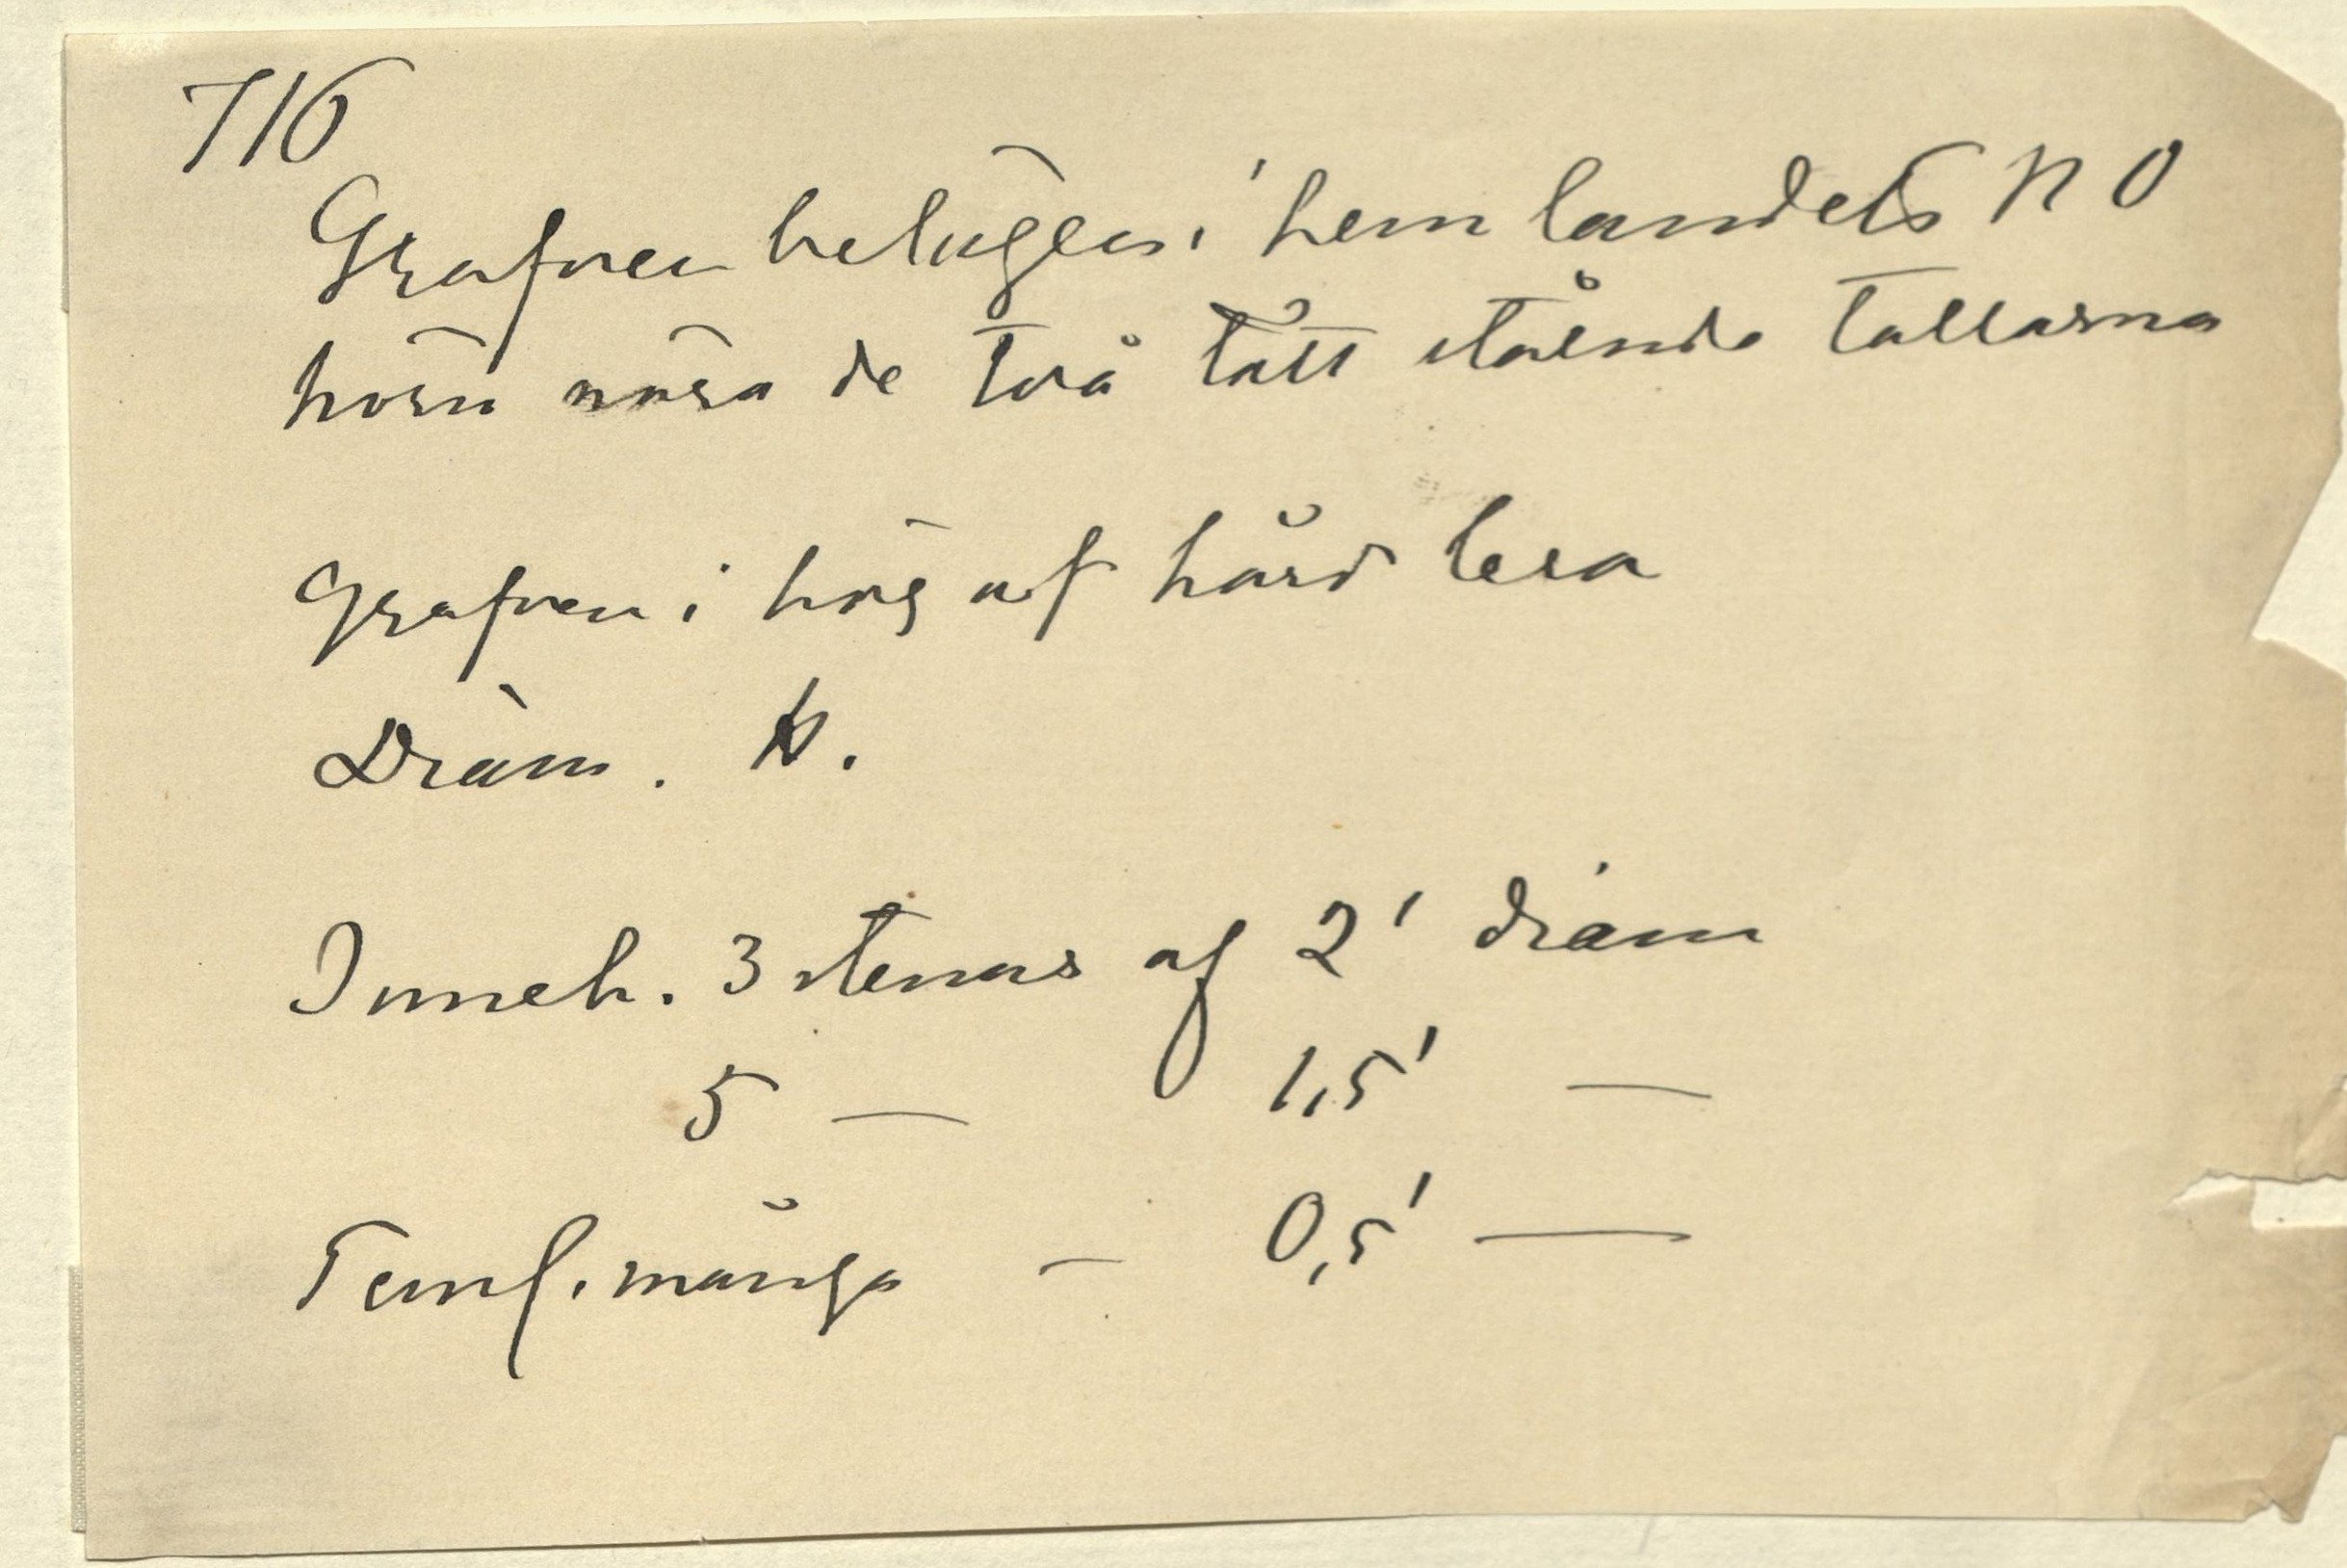 716
Grafven belägen i hemlandets NO
hörn nära de två tätt stående tallarna
Grafven i hög af hård lera
Diam. h.
Inneh. 3 stenar af 2' diam
5 — 1,5' —
Teml. många — 0,5' —